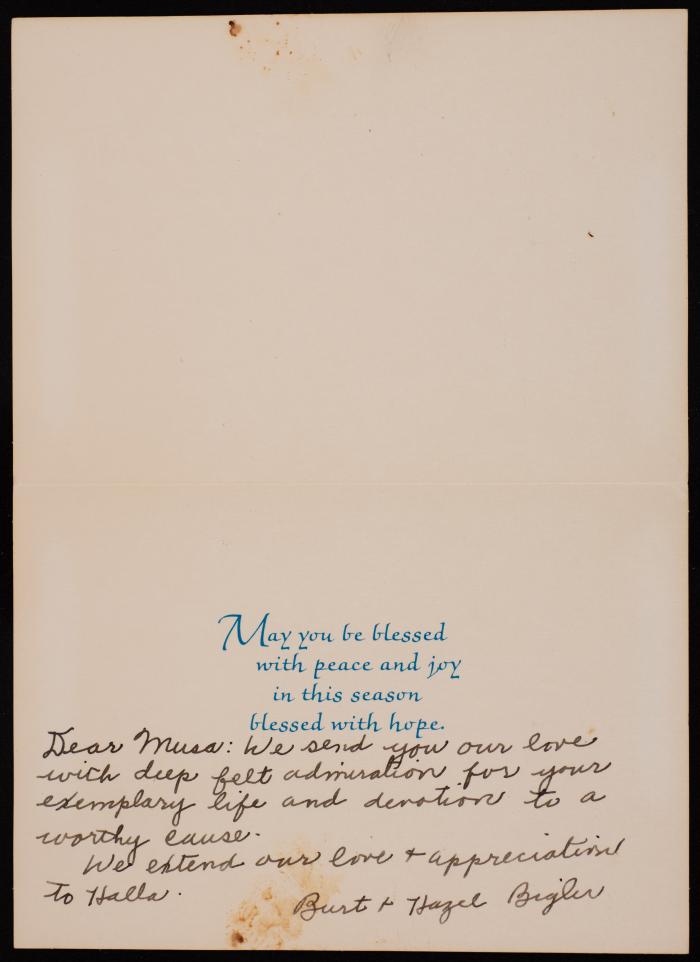 May you be blessed
with peace and joy
in this season
blessed with hope.
Dear Musa: We send you our love
with deep felt admiration for your
exemplary life and devotion to a
worthy cause.
We extend our love + appreciation
to Halla.
Burt + Hazel Bigler